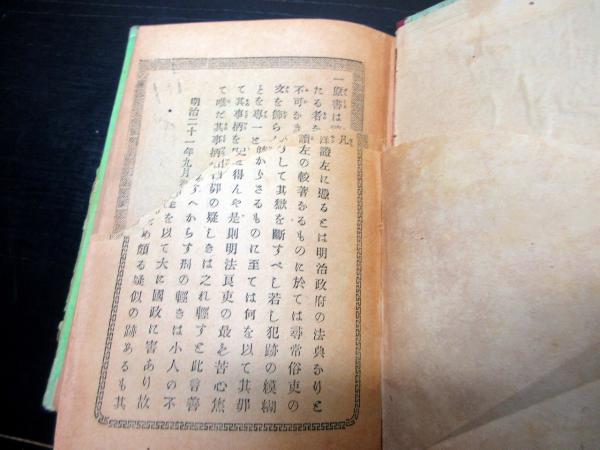 一原書は
凡
たる者を證左に遵るとは明治政府の法典かりと
不可かき左の較著かるものに於ては尋常俗吏の
文を飾らして其獄を斷すべし若し犯跡の模糊
とを專一とかさるものに至ては何を以て其罪
て其事柄を得んや是則明法良吏の最も苦心焦
て唯だ其事柄罪の疑しきは之れ輕すと此言善
明治二十一年九月すへからす刑の輕きは小人の不
を以て大に國政に害あり故
め頗る疑似の跡あるも其